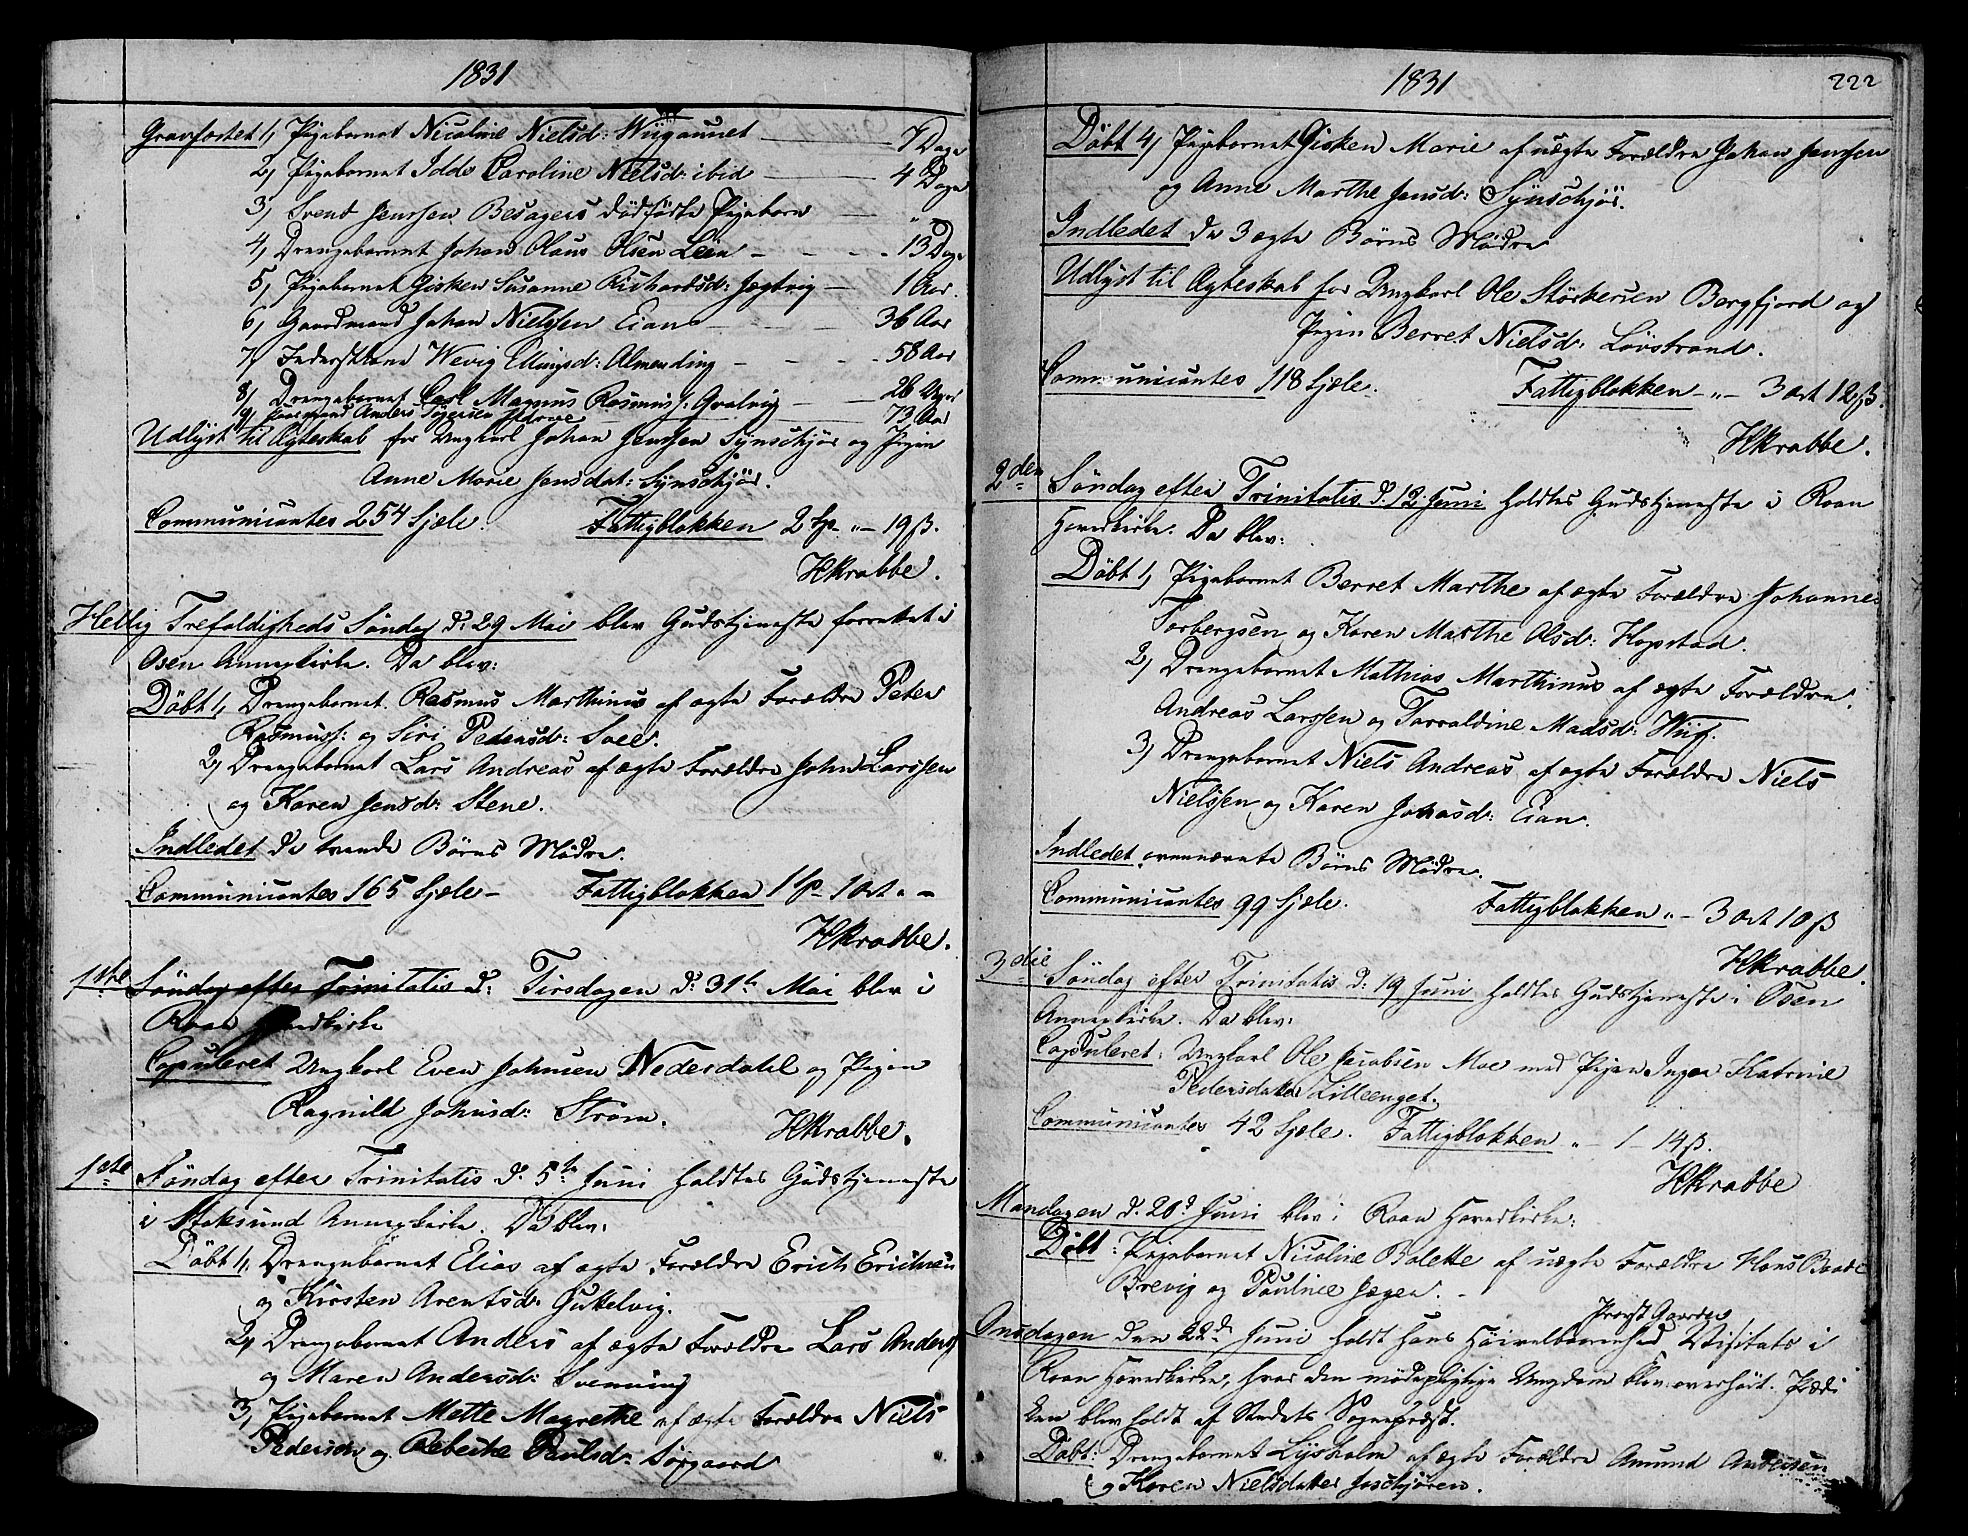 1831
Gravfæstet 1, Pigebarnet Nicoline Nielsd: Wiigaunet — 7 Dage
2, Pigebarnet Caroline Nielsd: ibid — 4 Dage
3, Svend Jenssen Besagers dödfödte Pigebarn — „
4, Drengebarnet Johan Olaus Olsen Leen — 13 Dage
5, Pigebarnet Gisken Susanne Richardsd: Jægtvig — 1 Aar.
6, Gaardmand Johan Nielssen Eian — 36 Aar
7, Inderstkone Wevig Ellingsd: Almending — 58 Aar
8, Drengebarnet Carl Magnus Rasmuss: — 26 Uger
9, Anders — 73 Aar
Udlyst til Ægteskab for Ungkarl Johan Jenssen Synschjör og Pigen
Anne Marie Jensdat: Synschjör.
Communicantes 254 Sjæle. Fattigblokken 2 Sp „ — 19 ß.
HKrabbe.
Hellig Trefoldigheds Søndag d: 29 Mai blev Gudstjeneste forrettet i
Osen Annexkirke. Da blev:
Döbt 1, Drengebarnet Rasmus Marthinus af ægte Forældre Peter
Rasmuss: og Siri Pedersd: Soee.
2, Drengebarnet Lars Andreas af ægte Forældre John Larssen
og Karen Jensd: Stene.
Indledet de tvende Börns Mödre.
Communicantes 165 Sjæle — Fattigblokken 1 Sp — 1 ort „ —
HKrabbe.
1ste Söndag efter Trinitatis d: Tirsdagen d: 31te Mai blev i
Roan Hovedkirke
Copuleret Ungkarl Even Johnsen Nedesdahl og Pigen
Ragnild Johnsd: Ström.
HKrabbe.
1ste Söndag efter Trinitatis d: 5te Juni holdtes Gudstjeneste
i Stoksund Annexkirke. Da blev:
Döbt 1, Drengebarnet Elias af ægte Forældre Erich Erichsen
og Kirsten Arentsd:
2, Drengebarnet Anders af ægte Forældre Lars Anders:
og Maren Andersd: Svenning
3, Pigebarnet Mette Magrethe af ægte Forældre Niels
Pedersen og Rebecke Paulsd: Sörgaard
1831 222
Döbt 4, Pigebarnet Gisken Marie af uægte Forældre Johan Jenssen
og Anne Marthe Jensd: Synschjör.
Indledet de 3 ægte Börns Mödre
Udlyst til Ægteskab for Ungkarl Ole Störkersen Bergfjord og
Pigen Berret Nielsd: Lövstrand.
Communicantes 118 Sjæle. Fattigblokken — „ — 3 ort 12 ß.
HKrabbe.
2den Söndag efter Trinitatis d: 12 Juni holdtes Gudstjeneste i Roan
Hovedkirke. Da blev:
Döbt 1, Pigebarnet Berret Marthe af ægte Forældre Johannes
Torbergsen og Karen Marthe Olsd: Hopstad.
2, Drengebarnet Mathias Marthinus af ægte Forældre
Andreas Larssen og Torraldine Madsd: Wiig.
3, Drengebarnet Niels Andreas af ægte Forældre Niels
Nielssen og Karen Johasd: Eian.
Indledet ovennævnte Börns Mödre.
Communicantes 99 Sjæle. Fattigblokken „ — 3 ort 10 ß
HKrabbe.
3die Söndag efter Trinitatis d: 19 Juni holdtes Gudstjeneste i Osen
Annexkirke. Da blev:
Copuleret: Ungkarl Ole Jacobsen Moe med Pigen Inger Katrine
Pedersdatter Lilleenget.
Communicantes 42 Sjæle. Fattigblokken „ — 1 — 14 ß.
HKrabbe
Mandagen d. 20d Juni blev i Roan Hovedkirke:
Döbt: Pigebarnet Nicoline Bolette af uægte Forældre Hans
Brevig og Pauline Jæger. —
Provst
Onsdagen den 22d Juni holdt hans Höivelbaarenhed Visitats i
Roan Hovedkirke, hvor den mödepligtige Ungdom blev overhört. Prædi
ken blev holdt af Stedets Sognepræst.
Döbt: Drengebarnet Lysholm af ægte Forældre Amund Andersen
og Karen Nielsdatter